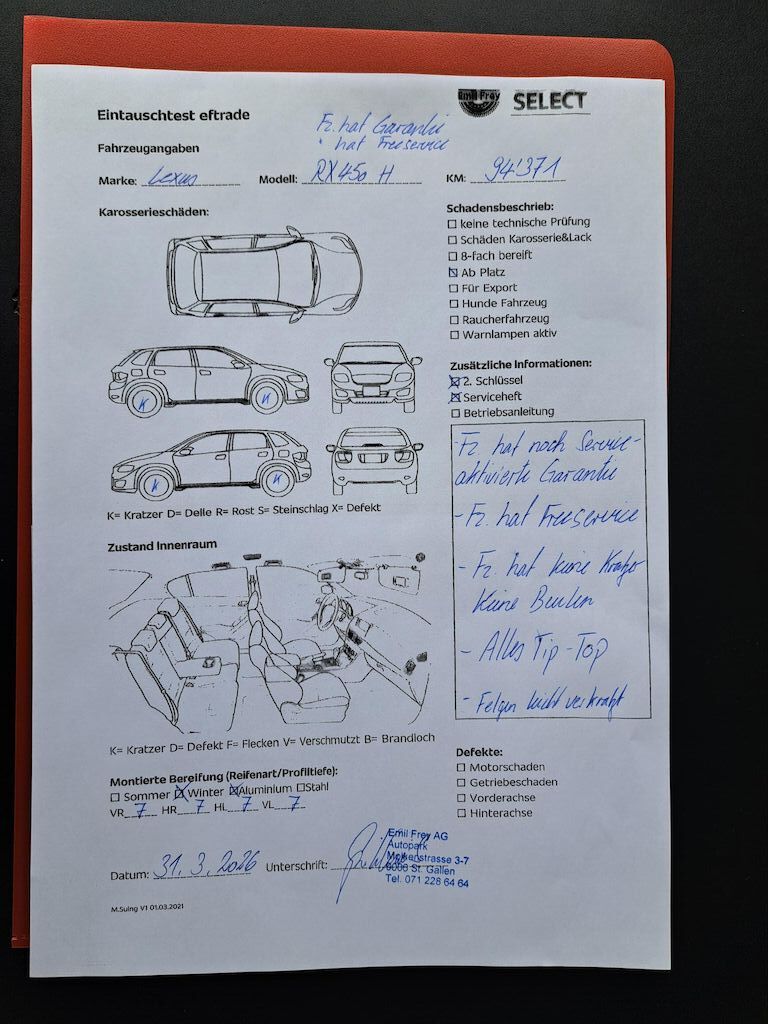 Emil Frey SELECT
Eintauschtest eftrade
Fz. hat Garantie
" hat Freeservice
Fahrzeugangaben
Marke: Lexus Modell: RX 450 H KM: 94'371
Karosserieschäden:
Schadensbeschrieb:
☐ keine technische Prüfung
☐ Schäden Karosserie&Lack
☐ 8-fach bereift
☒ Ab Platz
☐ Für Export
☐ Hunde Fahrzeug
☐ Raucherfahrzeug
☐ Warnlampen aktiv
Zusätzliche Informationen:
☒ 2. Schlüssel
☒ Serviceheft
☐ Betriebsanleitung
K K
K K
K= Kratzer D= Delle R= Rost S= Steinschlag X= Defekt
- Fz. hat noch Service-
aktivierte Garantie
- Fz. hat Freeservice
- Fz. hat keine Kratzer
keine Beulen
- Alles Tip-Top
- Felgen leicht verkratzt
Zustand Innenraum
K= Kratzer D= Defekt F= Flecken V= Verschmutzt B= Brandloch
Montierte Bereifung (Reifenart/Profiltiefe):
☐ Sommer ☒ Winter ☒ Aluminium ☐ Stahl
VR 7 HR 7 HL 7 VL 7
Defekte:
☐ Motorschaden
☐ Getriebeschaden
☐ Vorderachse
☐ Hinterachse
Datum: 31.3.2026 Unterschrift:
Emil Frey AG
Autopark
Molkenstrasse 3-7
9006 St. Gallen
Tel. 071 228 64 64
M.Suing V1 01.03.2021